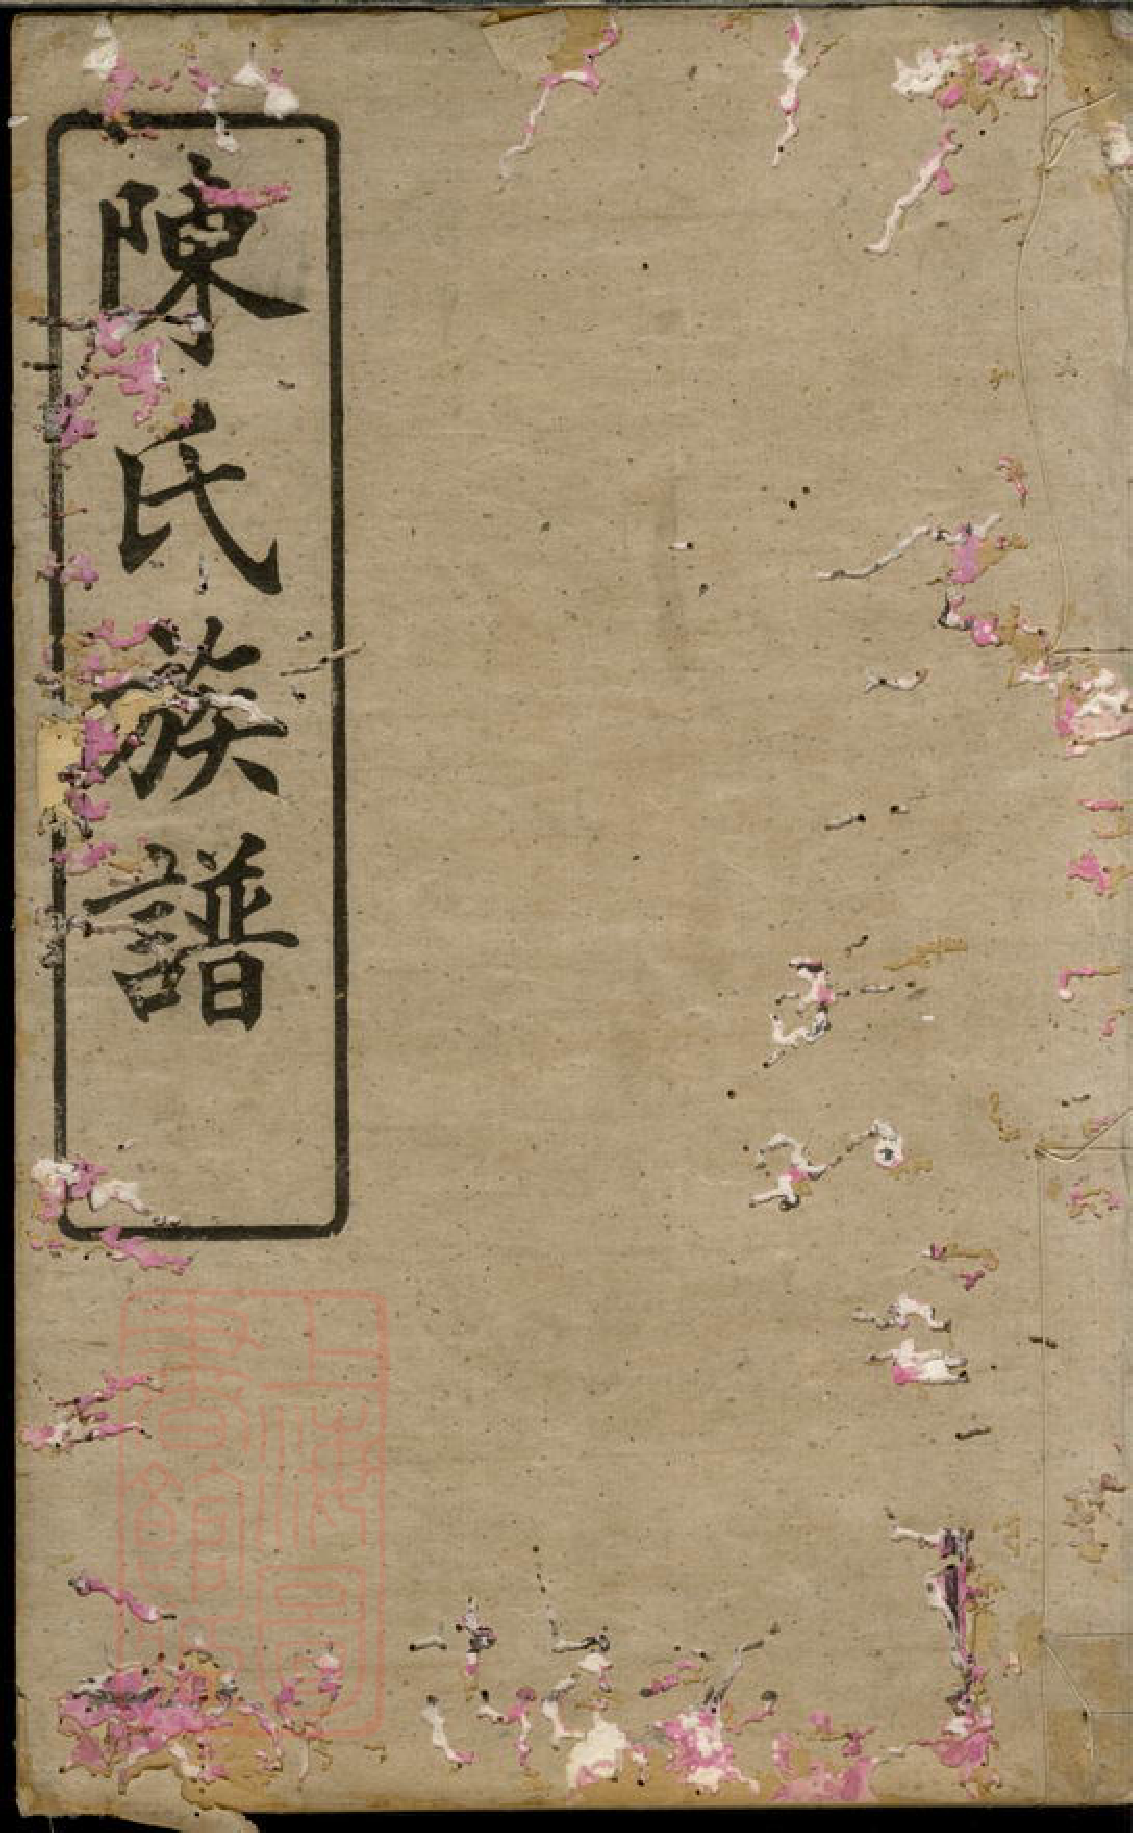 陳氏族譜
上海圖
書館藏